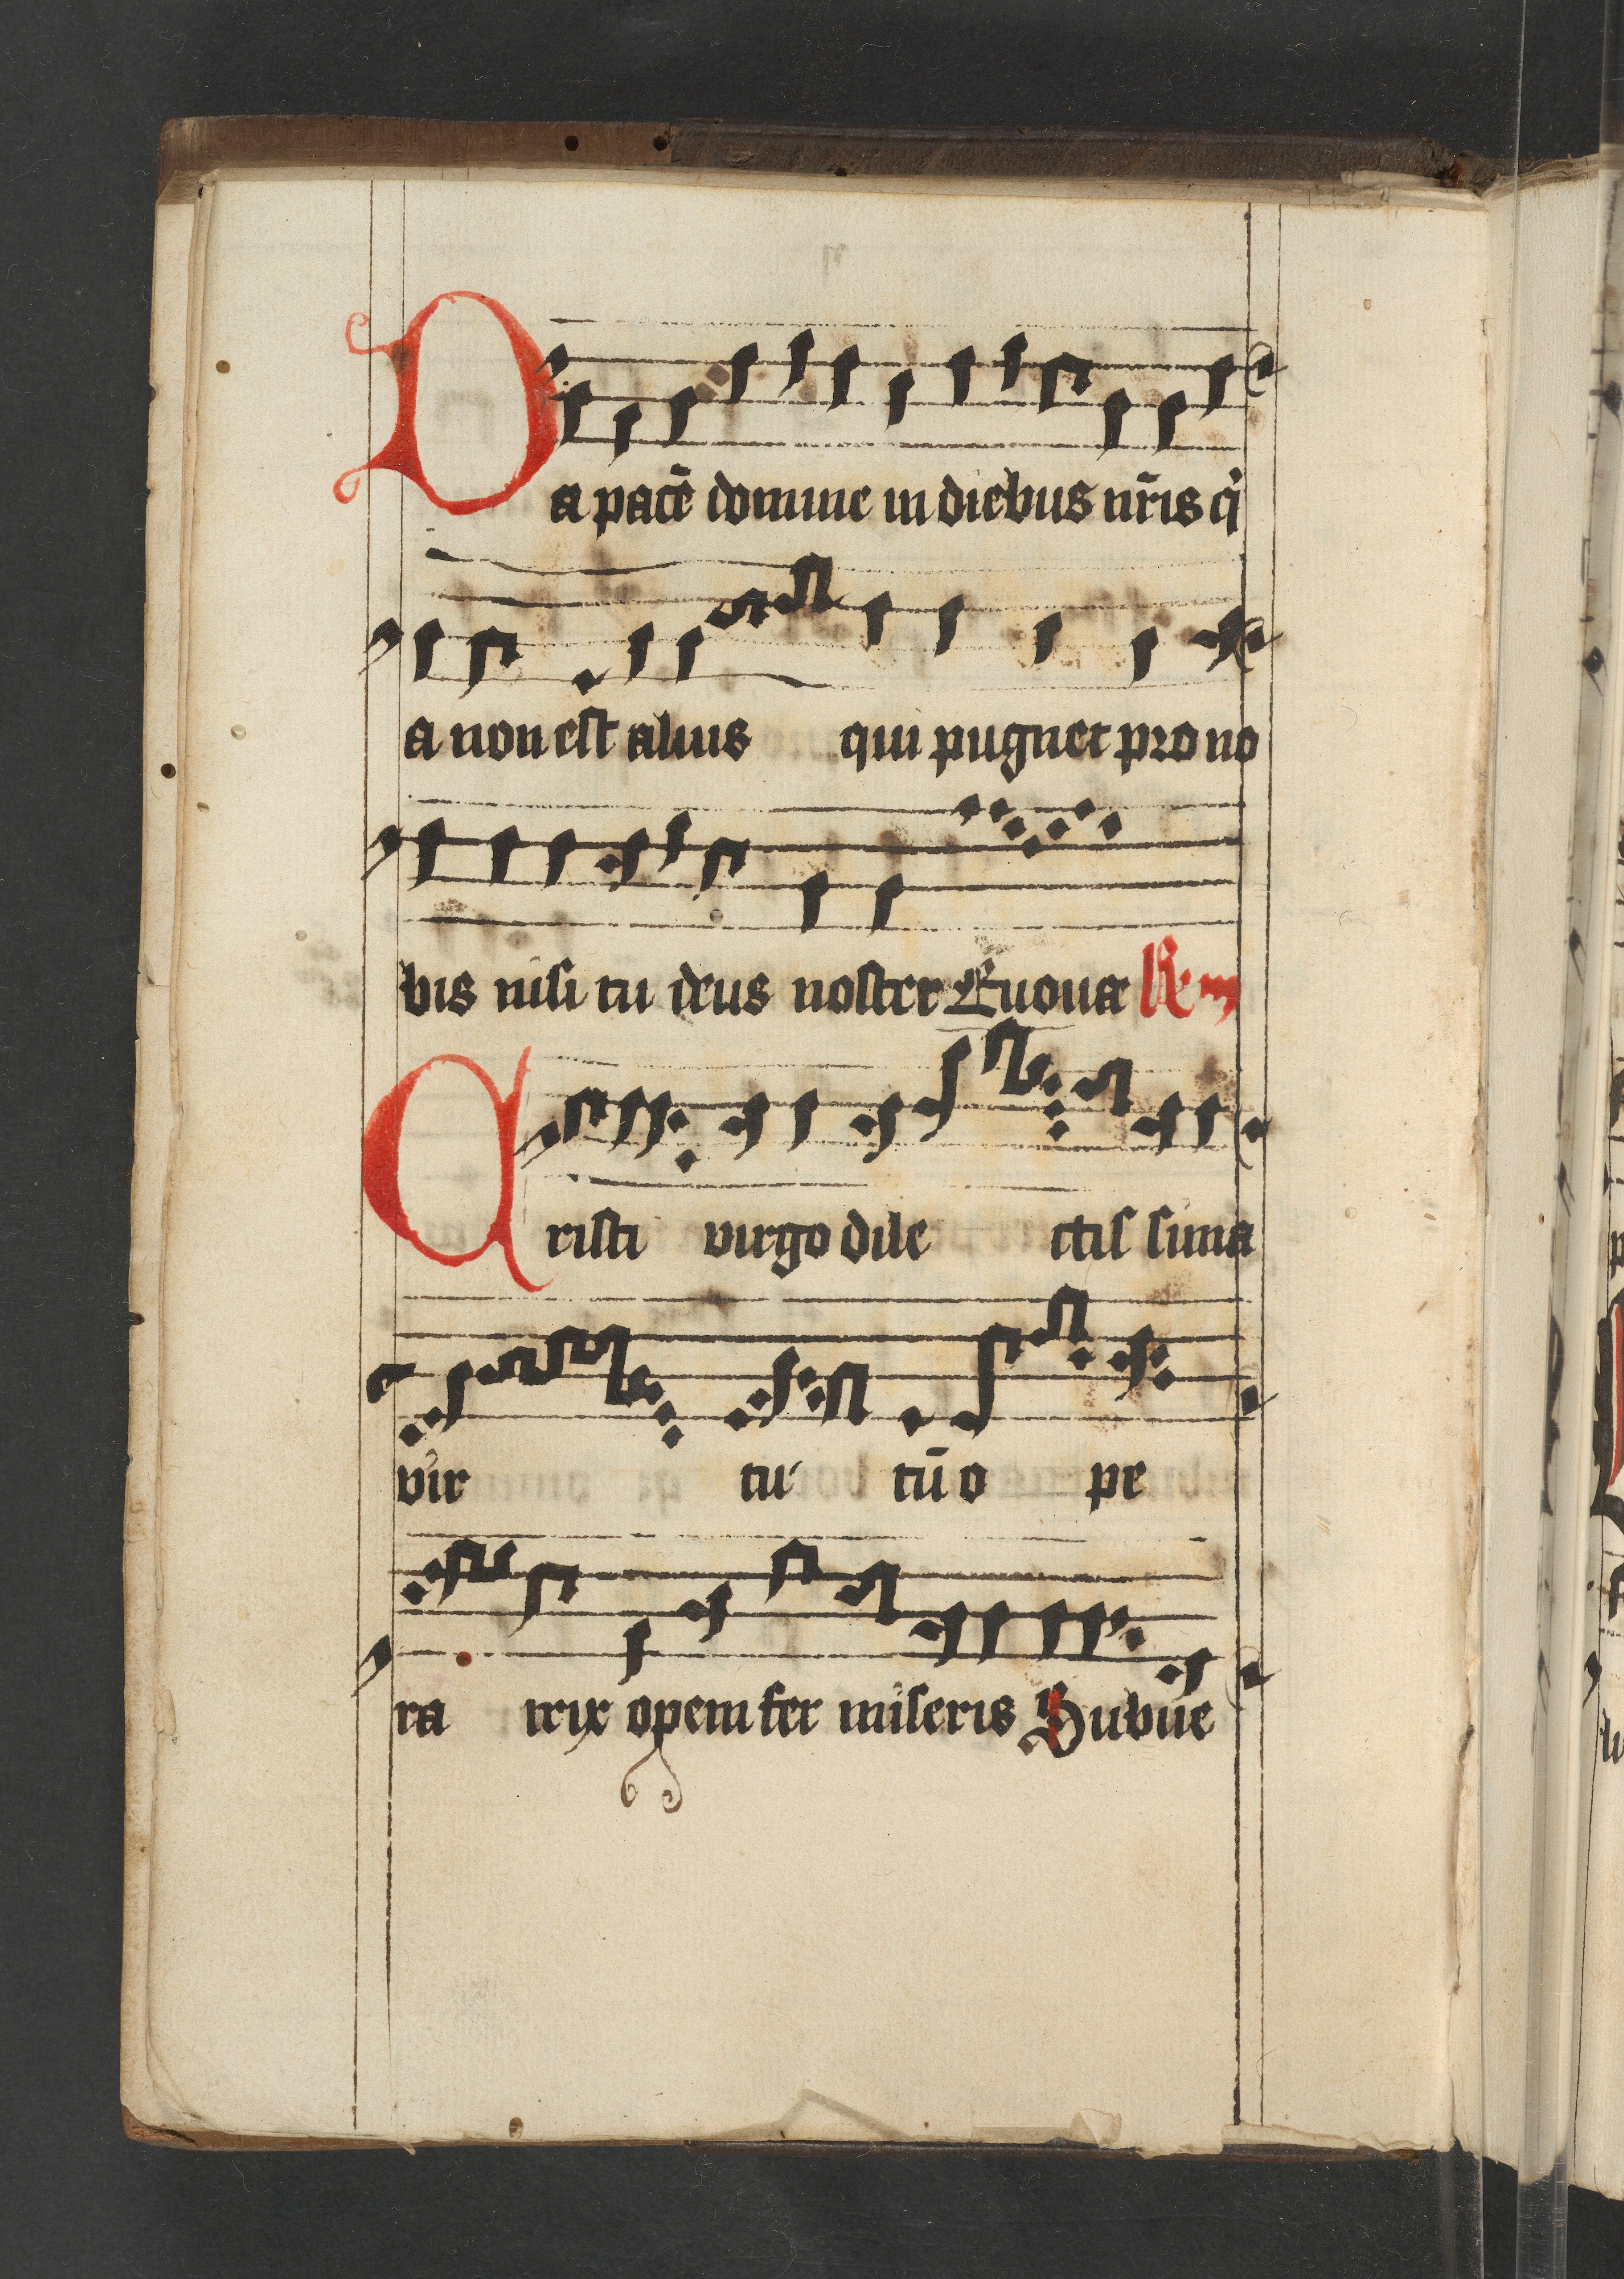 Da pacē domine in diebus nr̄is q̇
a non est alius qui pugnet pro no
bis nisi tu deus noster Euouae Re m
Cristi virgo dile ctis sima
vir tu tū o pe
ra trix opem fer miseris Subue